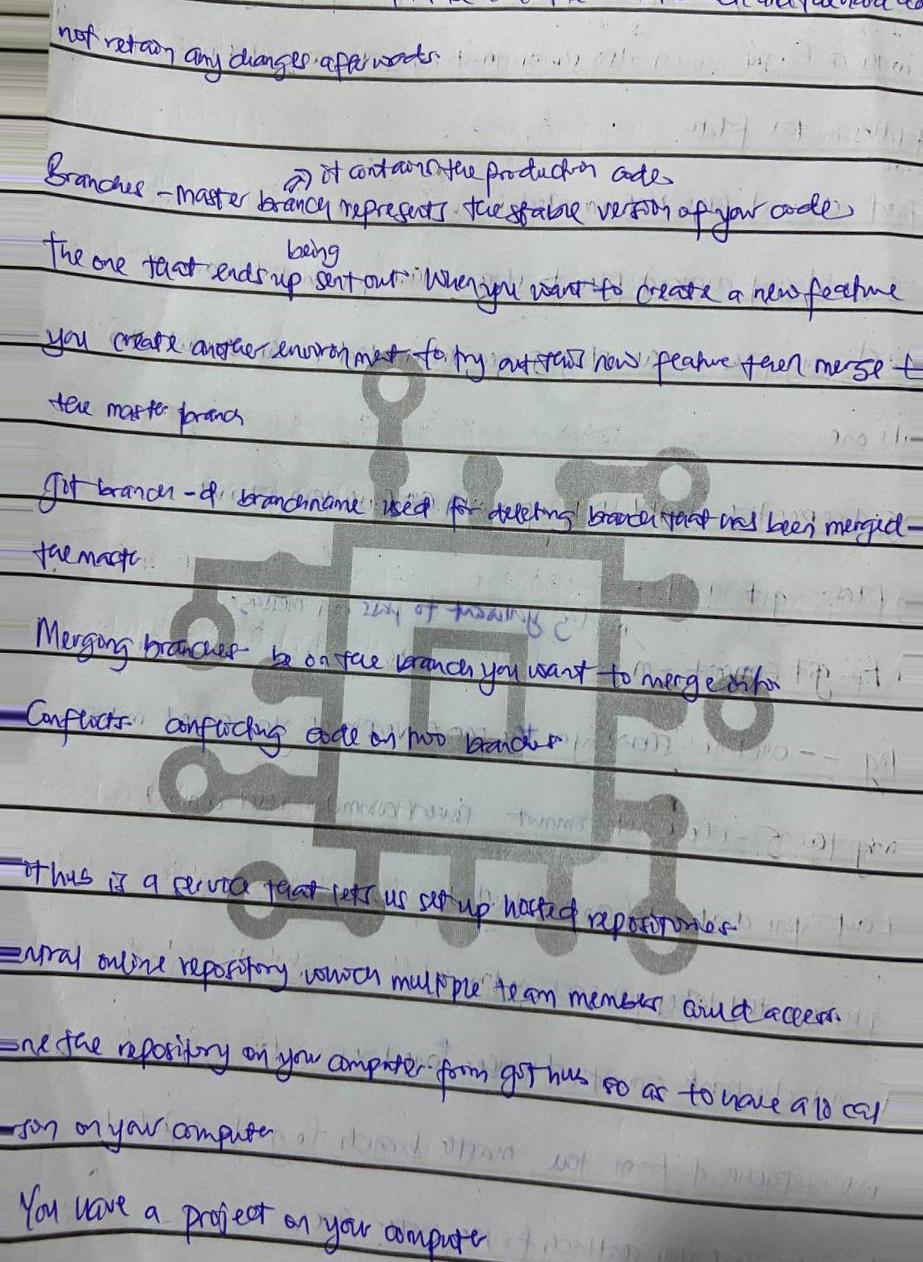 not retain any changes afterwards.
→ it contains the production code
Branches - master branch represents the stable version of your code,
being
the one that ends up sent out. When you want to create a new feature
you create another environment to try out this new feature then merge t
the master branch
git branch -d branchname used for deleting branch that has been merged -
the maste
Merging branches - be on the branch you want to merge into
Conflicts - conflicting code on two branches
ithub is a service that lets us set up hosted repositories
entral online repository which multiple team member could access.
one the repository on your computer from github so as to have a local
rson on your computer
You have a project on your computer